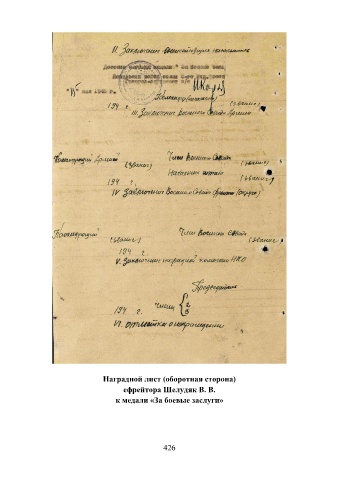 II. Заключение вышестоящих начальников
Достоин
медали "За боевые
мая 194
194 г. Командир (начальник) (звание)
III. Заключение военного Совета Армии
Командующий Армией (звание) Член Военного Совета (звание)
194 г.
IV. Заключение Военного Совета фронта (округа)
Командующий (звание) Член Военного Совета (звание)
194 г.
V. Заключение наградной комиссии НКО
Председатель
194 г. Члены { 1 2 3
VI. отметка о награждении
Наградной лист (оборотная сторона)
ефрейтора Шелудяк В. В.
к медали «За боевые заслуги»
426